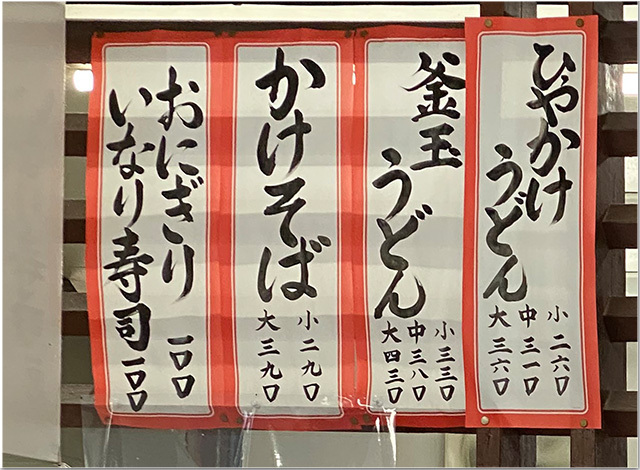 ひやかけ
うどん
小 二六〇
中 三一〇
大 三六〇
釜玉
うどん
小 三三〇
中 三八〇
大 四三〇
かけそば
小 二九〇
大 三九〇
おにぎり 一〇〇
いなり寿司 一〇〇